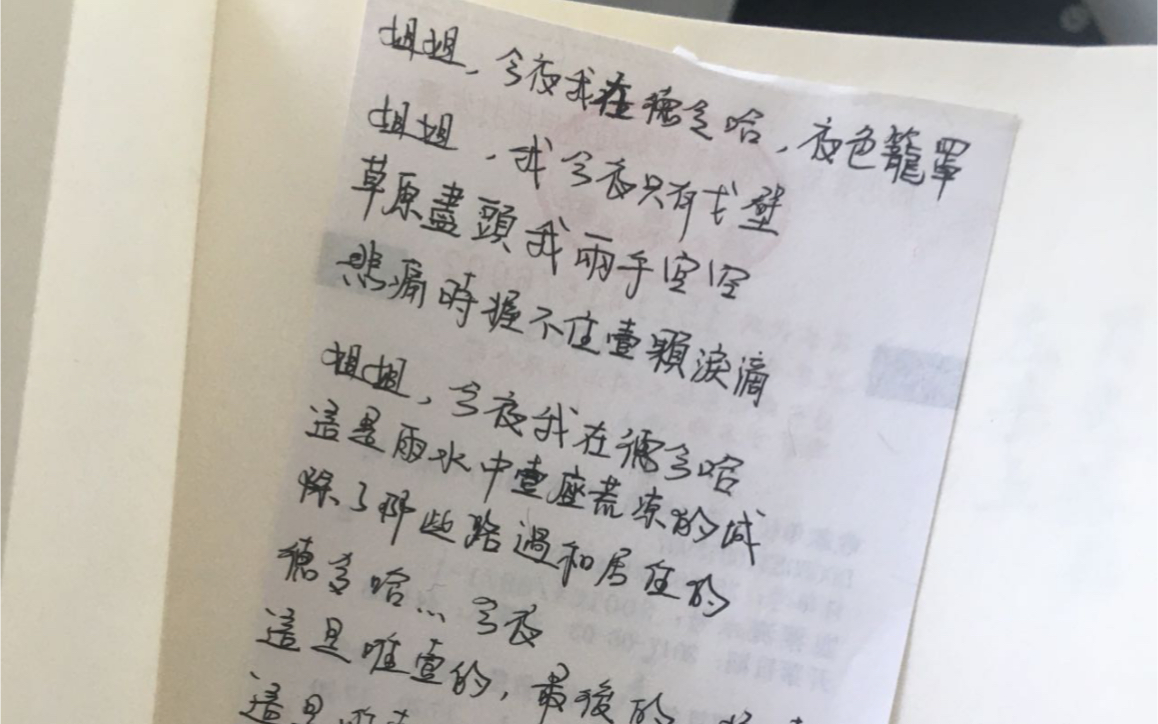 姐姐，今夜我在德令哈，夜色籠罩
姐姐，我今夜只有戈壁
草原盡頭我兩手空空
悲痛時握不住壹顆淚滴
姐姐，今夜我在德令哈
這是雨水中壹座荒凉的城
除了那些路過和居住的
德令哈…今夜
這是唯壹的，最後的
這是